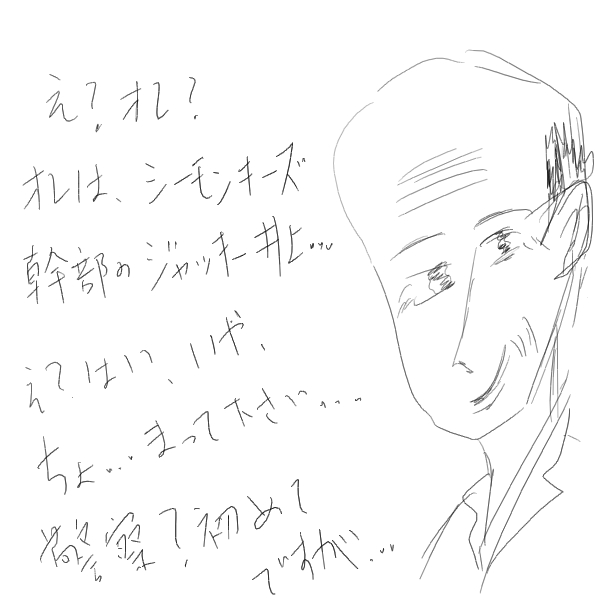 え?オレ?
オレは、シーモンキーズ
幹部のジャッキー井上...
え?はい、いや、
ちょ...まって下さい....
警察?初めて
ですが...